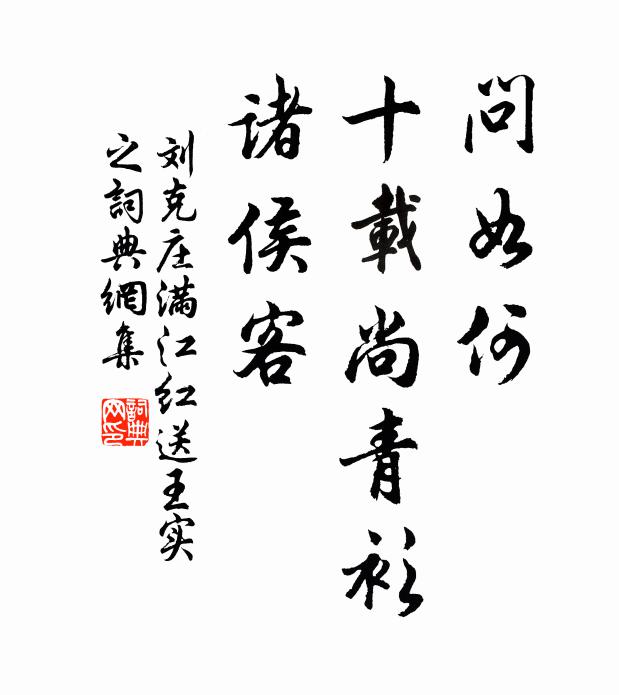 問如何
十載尚青衫
諸侯客
刘克庄满江红送王实
之詞典網集
詞典
网印